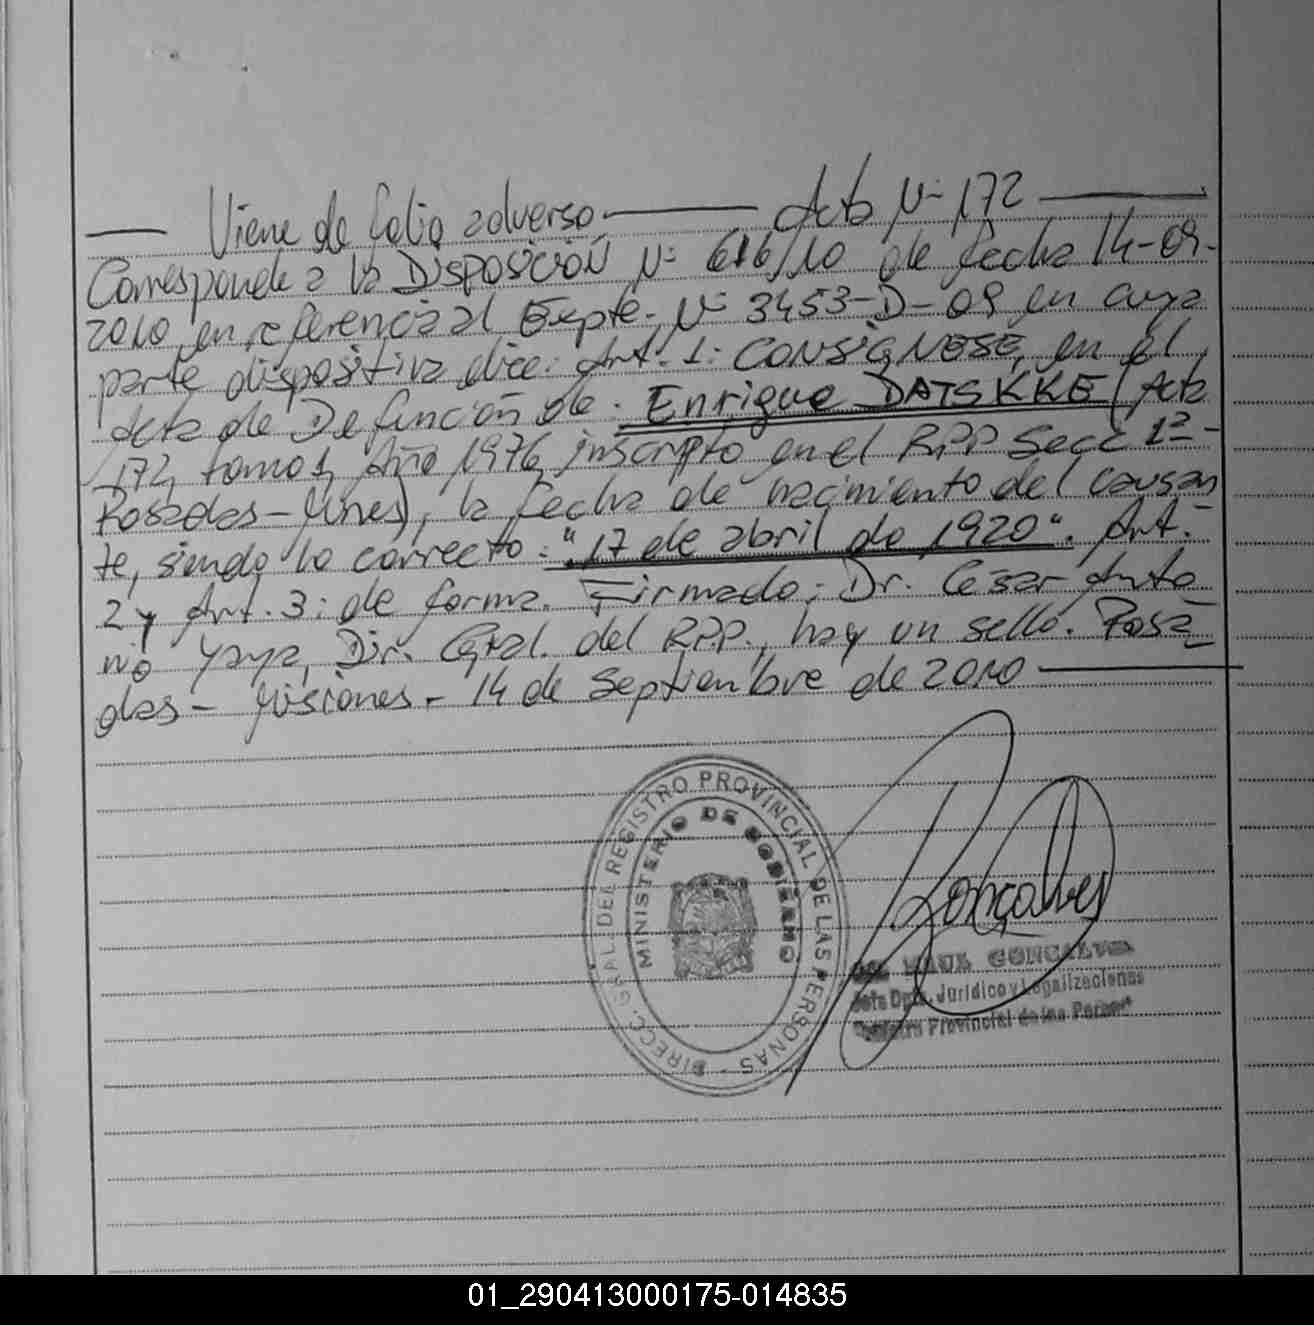 Viene de folio adverso. Acta Nº 172
Corresponde a la DISPOSICIÓN Nº 616/10 de fecha 14-09-
2010 en referencia al Expte. Nº 3453-D-09 en cuya
parte dispositiva dice: Art. 1: CONSIGNESE, en el
Acta de Defunción de: Enrique DATSKKE (Acta
172, tomo 1, Año 1976, inscripto en el RPP Secc 1ª-
Posadas-Mnes), la fecha de nacimiento del causan
te, siendo lo correcto: "17 de abril de 1920". Art.
2 y Art. 3: de forma. Firmado: Dr. César Anto
nio Yaya, Dir. Gral. del RPP., hay un sello. Posa
das - Misiones - 14 de Septiembre de 2010
DIRECC. GRAL. DEL REGISTRO PROVINCIAL DE LAS PERSONAS -
MINISTERIO DE GOBIERNO
Gonçalves
GONCALVES
Jefe Dpto. Jurídico y Legalizaciones
Registro Provincial de las Person
01_290413000175-014835